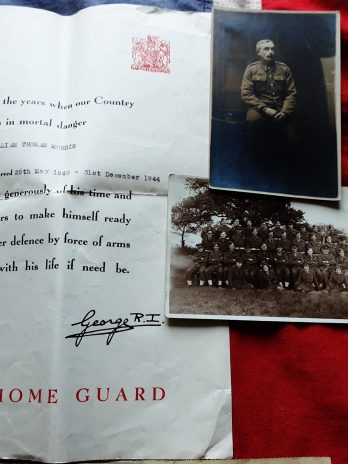 the years when our Country
in mortal danger
THOMAS MORRIS
29th May 1940 - 31st December 1944
generously of his time and
to make himself ready
defence by force of arms
with his life if need be.
George R.I.
HOME GUARD